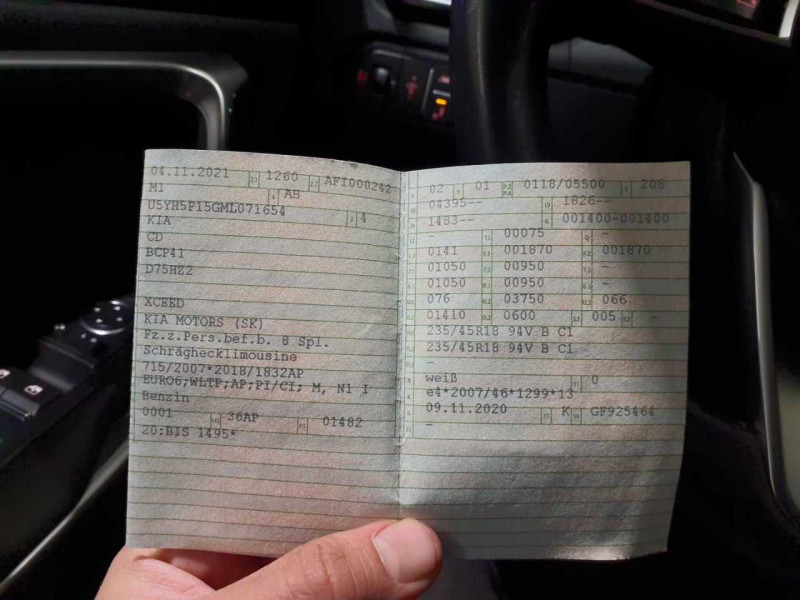 04.11.2021 1260 AFI000242
M1 AB
U5YH5P15GML071654 4
KIA
CD
BCP41
D75HZ2
XCEED
KIA MOTORS (SK)
Fz.z.Pers.bef.b. 8 Spl.
Schräghecklimousine
715/2007*2018/1832AP
EURO6;WLTP;AP;PI/CI; M, N1 I
Benzin
0001 36AP 01482
20:BIS 1495*
02 01 0118/05500 208
04395-- 1826--
1483-- 001400-001400
- 00075 -
0141 001870 001870
01050 00950 -
01050 00950 -
076 03750 066
01410 0600 005 -
235/45R18 94V B C1
235/45R18 94V B C1
-
weiß 0
e4*2007/46*1299*13
09.11.2020 K GF925464
-